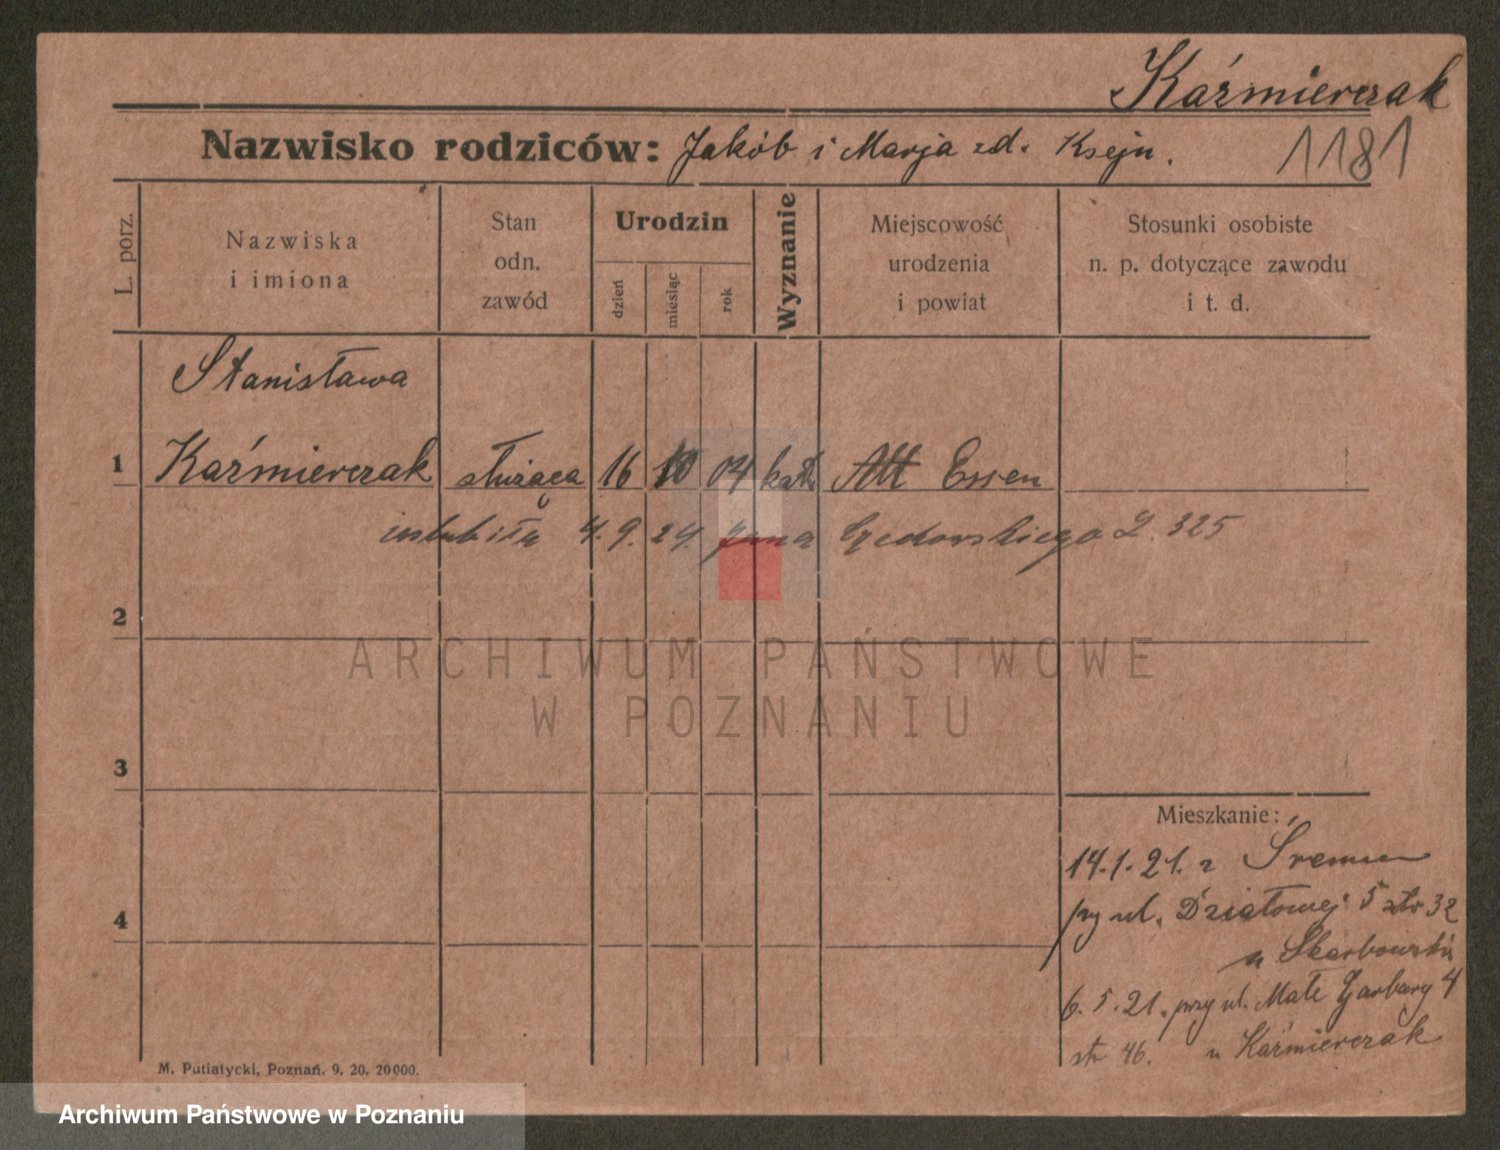 Kaźmierczak
Nazwisko rodziców: Jakób i Marja zd. Ksejn.
1181
L. porz.
Nazwiska
i imiona
Stan
odn.
zawód
Urodzin
dzień
miesiąc
rok
Wyznanie
Miejscowość
urodzenia
i powiat
Stosunki osobiste
n. p. dotyczące zawodu
i t. d.
Stanisława
1 Kaźmierczak służąca 16 10 04 kath Alt Essen
4.9.24. Jana L. 325
2
ARCHIWUM PAŃSTWOWE
W POZNANIU
3
Mieszkanie:
14.1.21. z Śremu
przy ul. Działowej 5 str 32
4
u Skarbowski
6.5.21. przy ul. Małe Garbary 4
str 46. u Kaźmierczak
M. Putiatycki, Poznań. 9. 20. 20000.
Archiwum Państwowe w Poznaniu